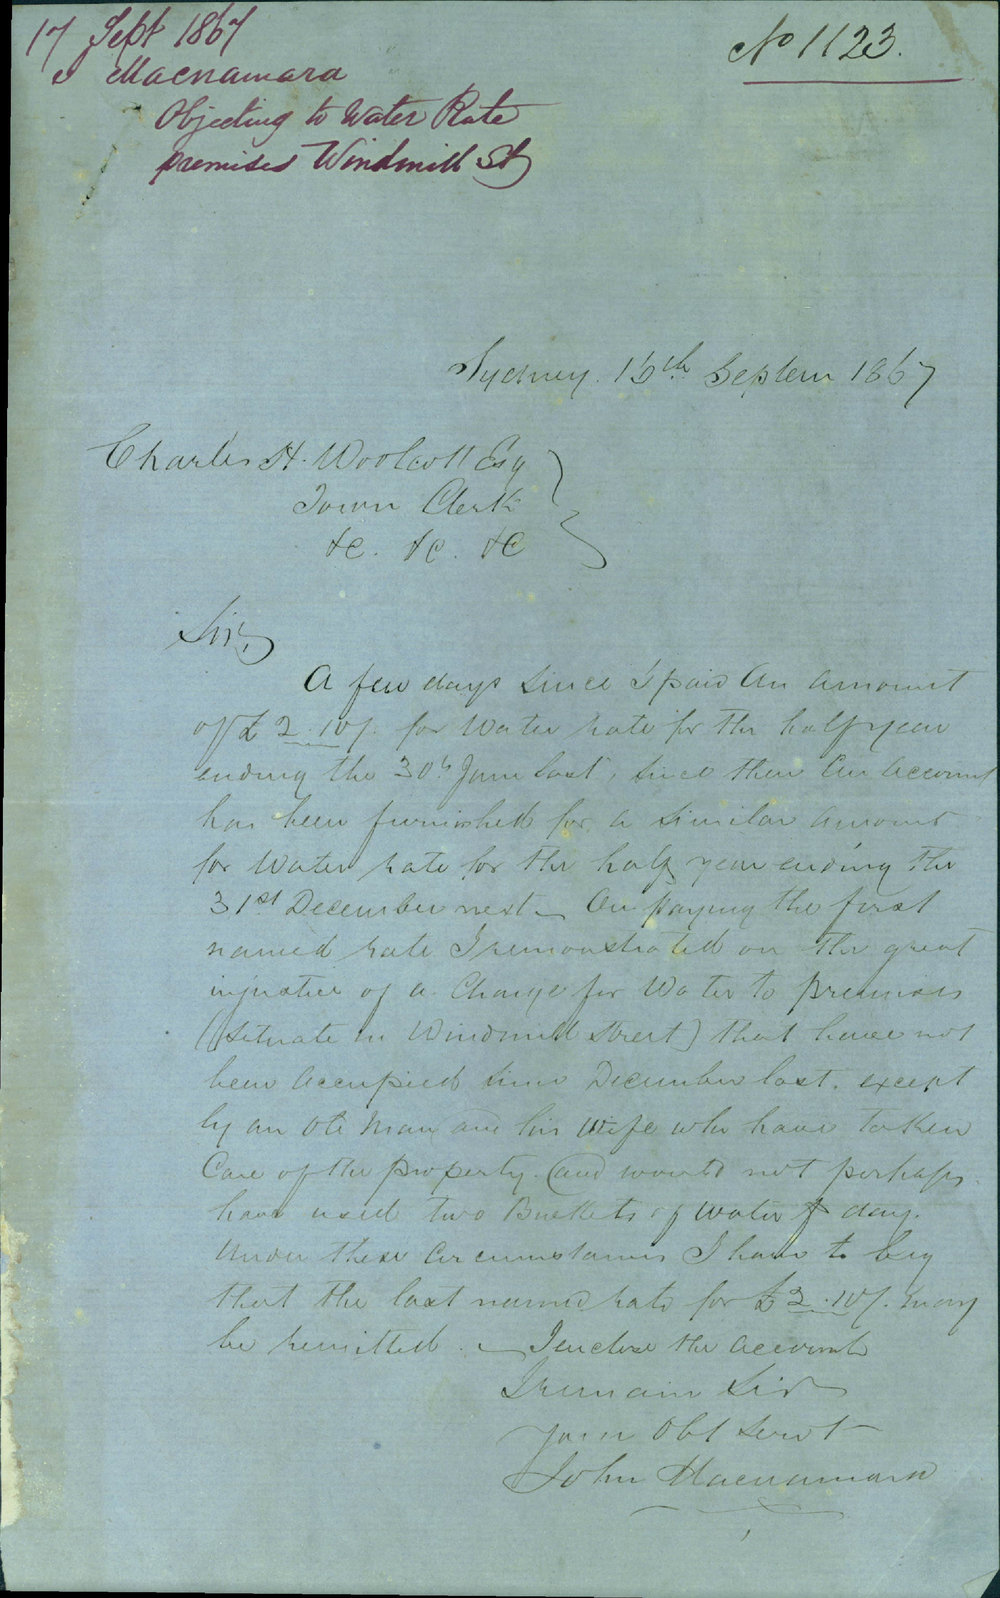 17 Sept 1867
J Macnamara
Objecting to Water Rate
premises Windmill St
No 1123.
Sydney. 16th Septem 1867
Charles H. Woolcott Esq
Town Clerk
&c. &c. &c
Sir,
A few days since I paid an amount
of £2.10/. for Water rate for the half year
ending the 30th June last, since then an account
has been furnished for a similar amount
for Water rate for the half year ending the
31st December next – On paying the first
named rate I remonstrated on the great
injustice of a charge for Water to premises
(situate in Windmill Street) that have not
been occupied since December last. except
by an old man and his wife who have taken
Care of the property. and would not perhaps
have used two Buckets of water ⅌ day.
Under these circumstances I have to beg
that the last named rate for £2.10/. may
be remitted. – I enclose the account
I remain Sir
Your Obt Servt
John Macnamara